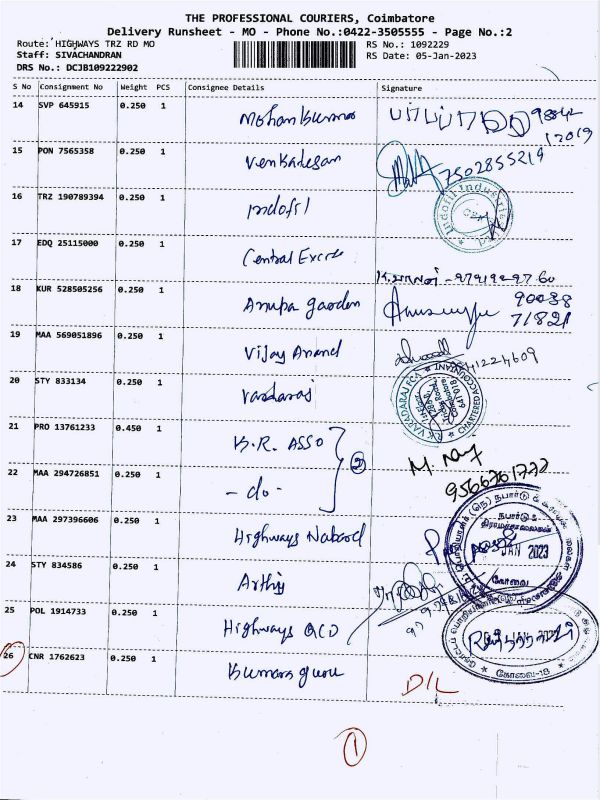 THE PROFESSIONAL COURIERS, Coimbatore
Delivery Runsheet - MO - Phone No.:0422-3505555 - Page No.:2
Route: HIGHWAYS TRZ RD MO
RS No.: 1092229
Staff: SIVACHANDRAN
RS Date: 05-Jan-2023
DRS No.: DCJB109222902
S No Consignment No Weight PCS Consignee Details Signature
14 SVP 645915 0.250 1 Mohan Kumar
15 PON 7565358 0.250 1 Venkadesan 7502855219
16 TRZ 190789394 0.250 1 Indofil
17 EDQ 25115000 0.250 1 Central Excise
18 KUR 528505256 0.250 1 Anupa garden 90038
71821
19 MAA 569051896 0.250 1 Vijay Anand
20 STY 833134 0.250 1 Vardaraj
R.K. VARADARAJ FCA
CHARTERED ACCOUNTANT
641 018
21 PRO 13761233 0.450 1 K.R. ASSO
22 MAA 294726851 0.250 1 - do -
23 MAA 297396606 0.250 1 Highways Nabard
நபார்டு &
JAN 2023
கோவை
24 STY 834586 0.250 1 Arthy
25 POL 1914733 0.250 1 Highways QCD
கோவை-18
26 CNR 1762623 0.250 1 Kumaraguru D/L
1